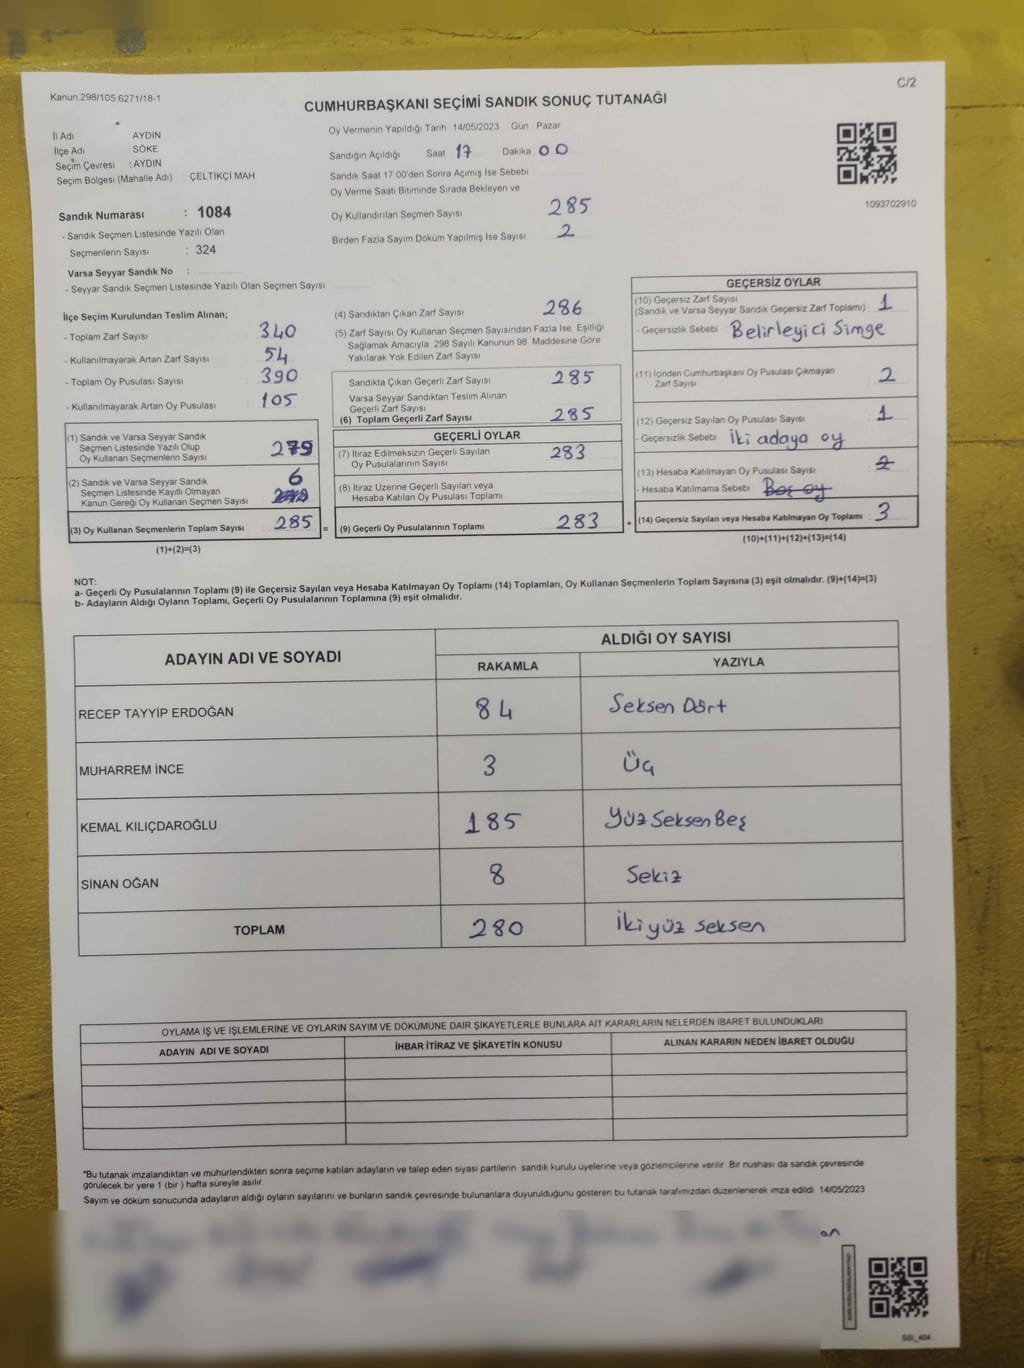 Kanun:298/105;6271/18-1
C/2
CUMHURBAŞKANI SEÇİMİ SANDIK SONUÇ TUTANAĞI
İl Adı AYDIN
İlçe Adı SÖKE
Seçim Çevresi : AYDIN
Seçim Bölgesi (Mahalle Adı) : ÇELTİKÇİ MAH
Sandık Numarası : 1084
- Sandık Seçmen Listesinde Yazılı Olan
Seçmenlerin Sayısı : 324
Varsa Seyyar Sandık No :
- Seyyar Sandık Seçmen Listesinde Yazılı Olan Seçmen Sayısı:
Oy Vermenin Yapıldığı Tarih 14/05/2023 Gün Pazar
Sandığın Açıldığı Saat 17 Dakika 00
Sandık Saat 17:00'den Sonra Açımış İse Sebebi
Oy Verme Saati Bitiminde Sırada Bekleyen ve
Oy Kullandırılan Seçmen Sayısı 285
Birden Fazla Sayım Döküm Yapılmış İse Sayısı 2
1093702910
İlçe Seçim Kurulundan Teslim Alınan;
- Toplam Zarf Sayısı 340
- Kullanılmayarak Artan Zarf Sayısı 54
- Toplam Oy Pusulası Sayısı 390
- Kullanılmayarak Artan Oy Pusulası 105
(1) Sandık ve Varsa Seyyar Sandık
Seçmen Listesinde Yazılı Olup
Oy Kullanan Seçmenlerin Sayısı 279
(2) Sandık ve Varsa Seyyar Sandık
Seçmen Listesinde Kayıtlı Olmayan
Kanun Gereği Oy Kullanan Seçmen Sayısı 6
(3) Oy Kullanan Seçmenlerin Toplam Sayısı 285 =
(1)+(2)=(3)
(4) Sandıktan Çıkan Zarf Sayısı 286
(5) Zarf Sayısı Oy Kullanan Seçmen Sayısından Fazla İse, Eşitliği
Sağlamak Amacıyla; 298 Sayılı Kanunun 98. Maddesine Göre
Yakılarak Yok Edilen Zarf Sayısı
Sandıkta Çıkan Geçerli Zarf Sayısı 285
Varsa Seyyar Sandıktan Teslim Alınan
Geçerli Zarf Sayısı
(6) Toplam Geçerli Zarf Sayısı 285
GEÇERLİ OYLAR
(7) İtiraz Edilmeksizin Geçerli Sayılan
Oy Pusulalarının Sayısı 283
(8) İtiraz Üzerine Geçerli Sayılan veya
Hesaba Katılan Oy Pusulası Toplamı
(9) Geçerli Oy Pusulalarının Toplamı 283 +
GEÇERSİZ OYLAR
(10) Geçersiz Zarf Sayısı
(Sandık ve Varsa Seyyar Sandık Geçersiz Zarf Toplamı) 1
- Geçersizlik Sebebi Belirleyici Simge
(11) İçinden Cumhurbaşkanı Oy Pusulası Çıkmayan
Zarf Sayısı 2
(12) Geçersiz Sayılan Oy Pusulası Sayısı 1
- Geçersizlik Sebebi İki adaya oy
(13) Hesaba Katılmayan Oy Pusulası Sayısı 2
- Hesaba Katılmama Sebebi Boş oy
(14) Geçersiz Sayılan veya Hesaba Katılmayan Oy Toplamı 3
(10)+(11)+(12)+(13)=(14)
NOT:
a- Geçerli Oy Pusulalarının Toplamı (9) ile Geçersiz Sayılan veya Hesaba Katılmayan Oy Toplamı (14) Toplamları, Oy Kullanan Seçmenlerin Toplam Sayısına (3) eşit olmalıdır. (9)+(14)=(3)
b- Adayların Aldığı Oyların Toplamı, Geçerli Oy Pusulalarının Toplamına (9) eşit olmalıdır.
ADAYIN ADI VE SOYADI
ALDIĞI OY SAYISI
RAKAMLA YAZIYLA
RECEP TAYYİP ERDOĞAN 84 Seksen Dört
MUHARREM İNCE 3 Üç
KEMAL KILIÇDAROĞLU 185 Yüz Seksen Beş
SİNAN OĞAN 8 Sekiz
TOPLAM 280 İki yüz seksen
OYLAMA İŞ VE İŞLEMLERİNE VE OYLARIN SAYIM VE DÖKÜMÜNE DAİR ŞİKAYETLERLE BUNLARA AİT KARARLARIN NELERDEN İBARET BULUNDUKLARI
ADAYIN ADI VE SOYADI İHBAR İTİRAZ VE ŞİKAYETİN KONUSU ALINAN KARARIN NEDEN İBARET OLDUĞU
*Bu tutanak imzalandıktan ve mühürlendikten sonra seçime katılan adayların ve talep eden siyasi partilerin sandık kurulu üyelerine veya gözlemcilerine verilir. Bir nushası da sandık çevresinde
görülecek bir yere 1 (bir ) hafta süreyle asılır.
Sayım ve döküm sonucunda adayların aldığı oyların sayılarını ve bunların sandık çevresinde bulunanlara duyurulduğunu gösteren bu tutanak tarafımızdan düzenlenerek imza edildi. 14/05/2023
an